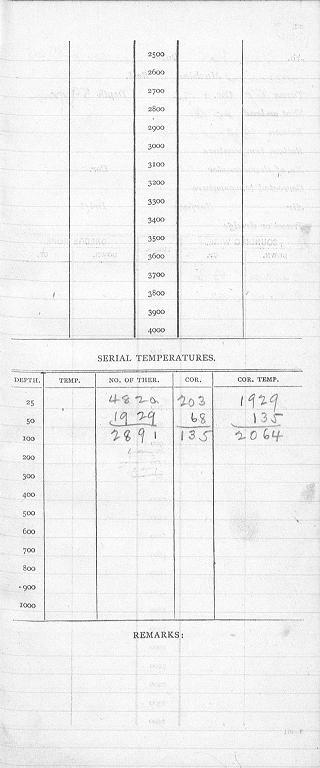 2500
2600
2700
2800
2900
3000
3100
3200
3300
3400
3500
3600
3700
3800
3900
4000
SERIAL TEMPERATURES.
DEPTH. TEMP. NO. OF THER. COR. COR. TEMP.
25 4820 203 1929
50 1929 68 135
100 2891 135 2064
200
300
400
500
600
700
800
900
1000
REMARKS: